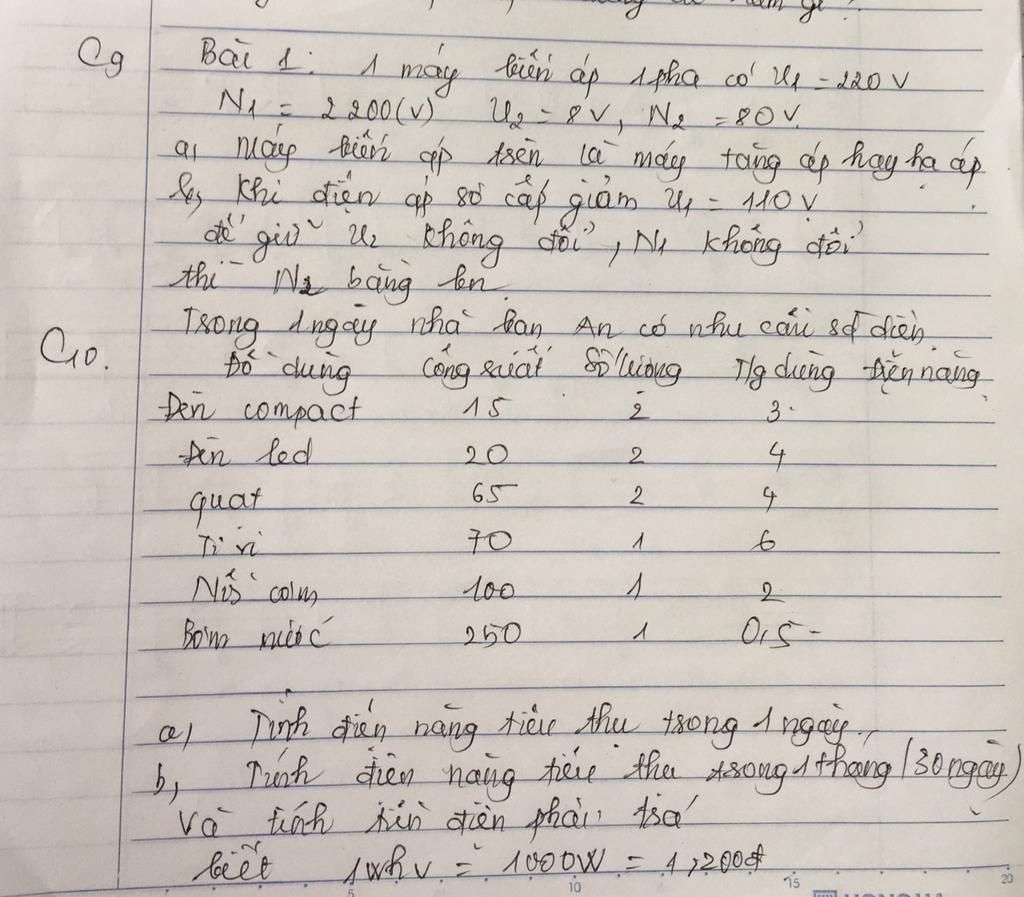 C9 Bài 1: 1 máy biến áp 1 pha có U1 = 220 V
N1 = 2200(V) U2 = 8V, N2 = 80V.
a, Máy biến áp trên là máy tăng áp hay hạ áp
b, Khi điện áp sơ cấp giảm U1 = 110 V
để giữ U2 không đổi, N1 không đổi
thì N2 bằng bn.
C10. Trong 1 ngày nhà bạn An có nhu cầu sd điện.
Đồ dùng Công suất Số lượng T/g dùng Điện năng
Đèn compact 15 2 3
Đèn led 20 2 4
quạt 65 2 4
Ti vi 70 1 6
Nồi cơm 100 1 2
Bơm nước 250 1 0,5
a, Tính điện năng tiêu thụ trong 1 ngày.
b, Tính điện năng tiêu thụ trong 1 tháng (30 ngày)
Và tính tiền điện phải trả
biết 1whv = 1000W = 1,200đ
5 10 15 20